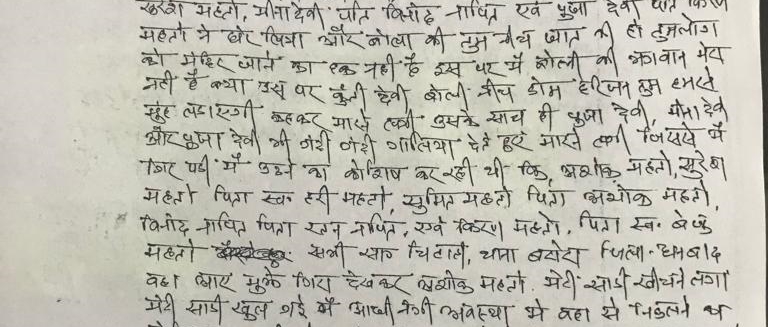 सुरेश महतो, मीना देवी पति विनोद नापित एवं पुजा देवी पति किरण
महतो ने घेर लिया और बोला की तुम नीच जात की हो तुमलोग
को मंदिर जाने का हक नही है इस पर मैं बोली की भगवान मेरा
नही है क्या उस पर कुंती देवी बोली नीच डोम हरिजन तुम हमसे
मुंह लडाएगी कहकर मारने लगी उसके साथ ही पुजा देवी, मीना देवी
और पुजा देवी भी गंदी गंदी गालिया देते हुए मारने लगी जिससे मैं
गिर पडी मैं उठने का कोशिष कर रही थी कि, अशोक महतो, सुरेश
महतो पिता स्व० हरी महतो, सुमित महतो पिता अशोक महतो,
विनोद नापित पिता रतन नापित, एवं किरण महतो, पिता स्व. बैजु
महतो सभी साo चिटाही, थाना बरोरा जिला-धनबाद
वहा आए मुझे गिरा देखकर अशोक महतो मेरी साडी खीचने लगा
मेरी साडी खुल गई मैं आधी नंगी अवस्था मे वहा से निकलने